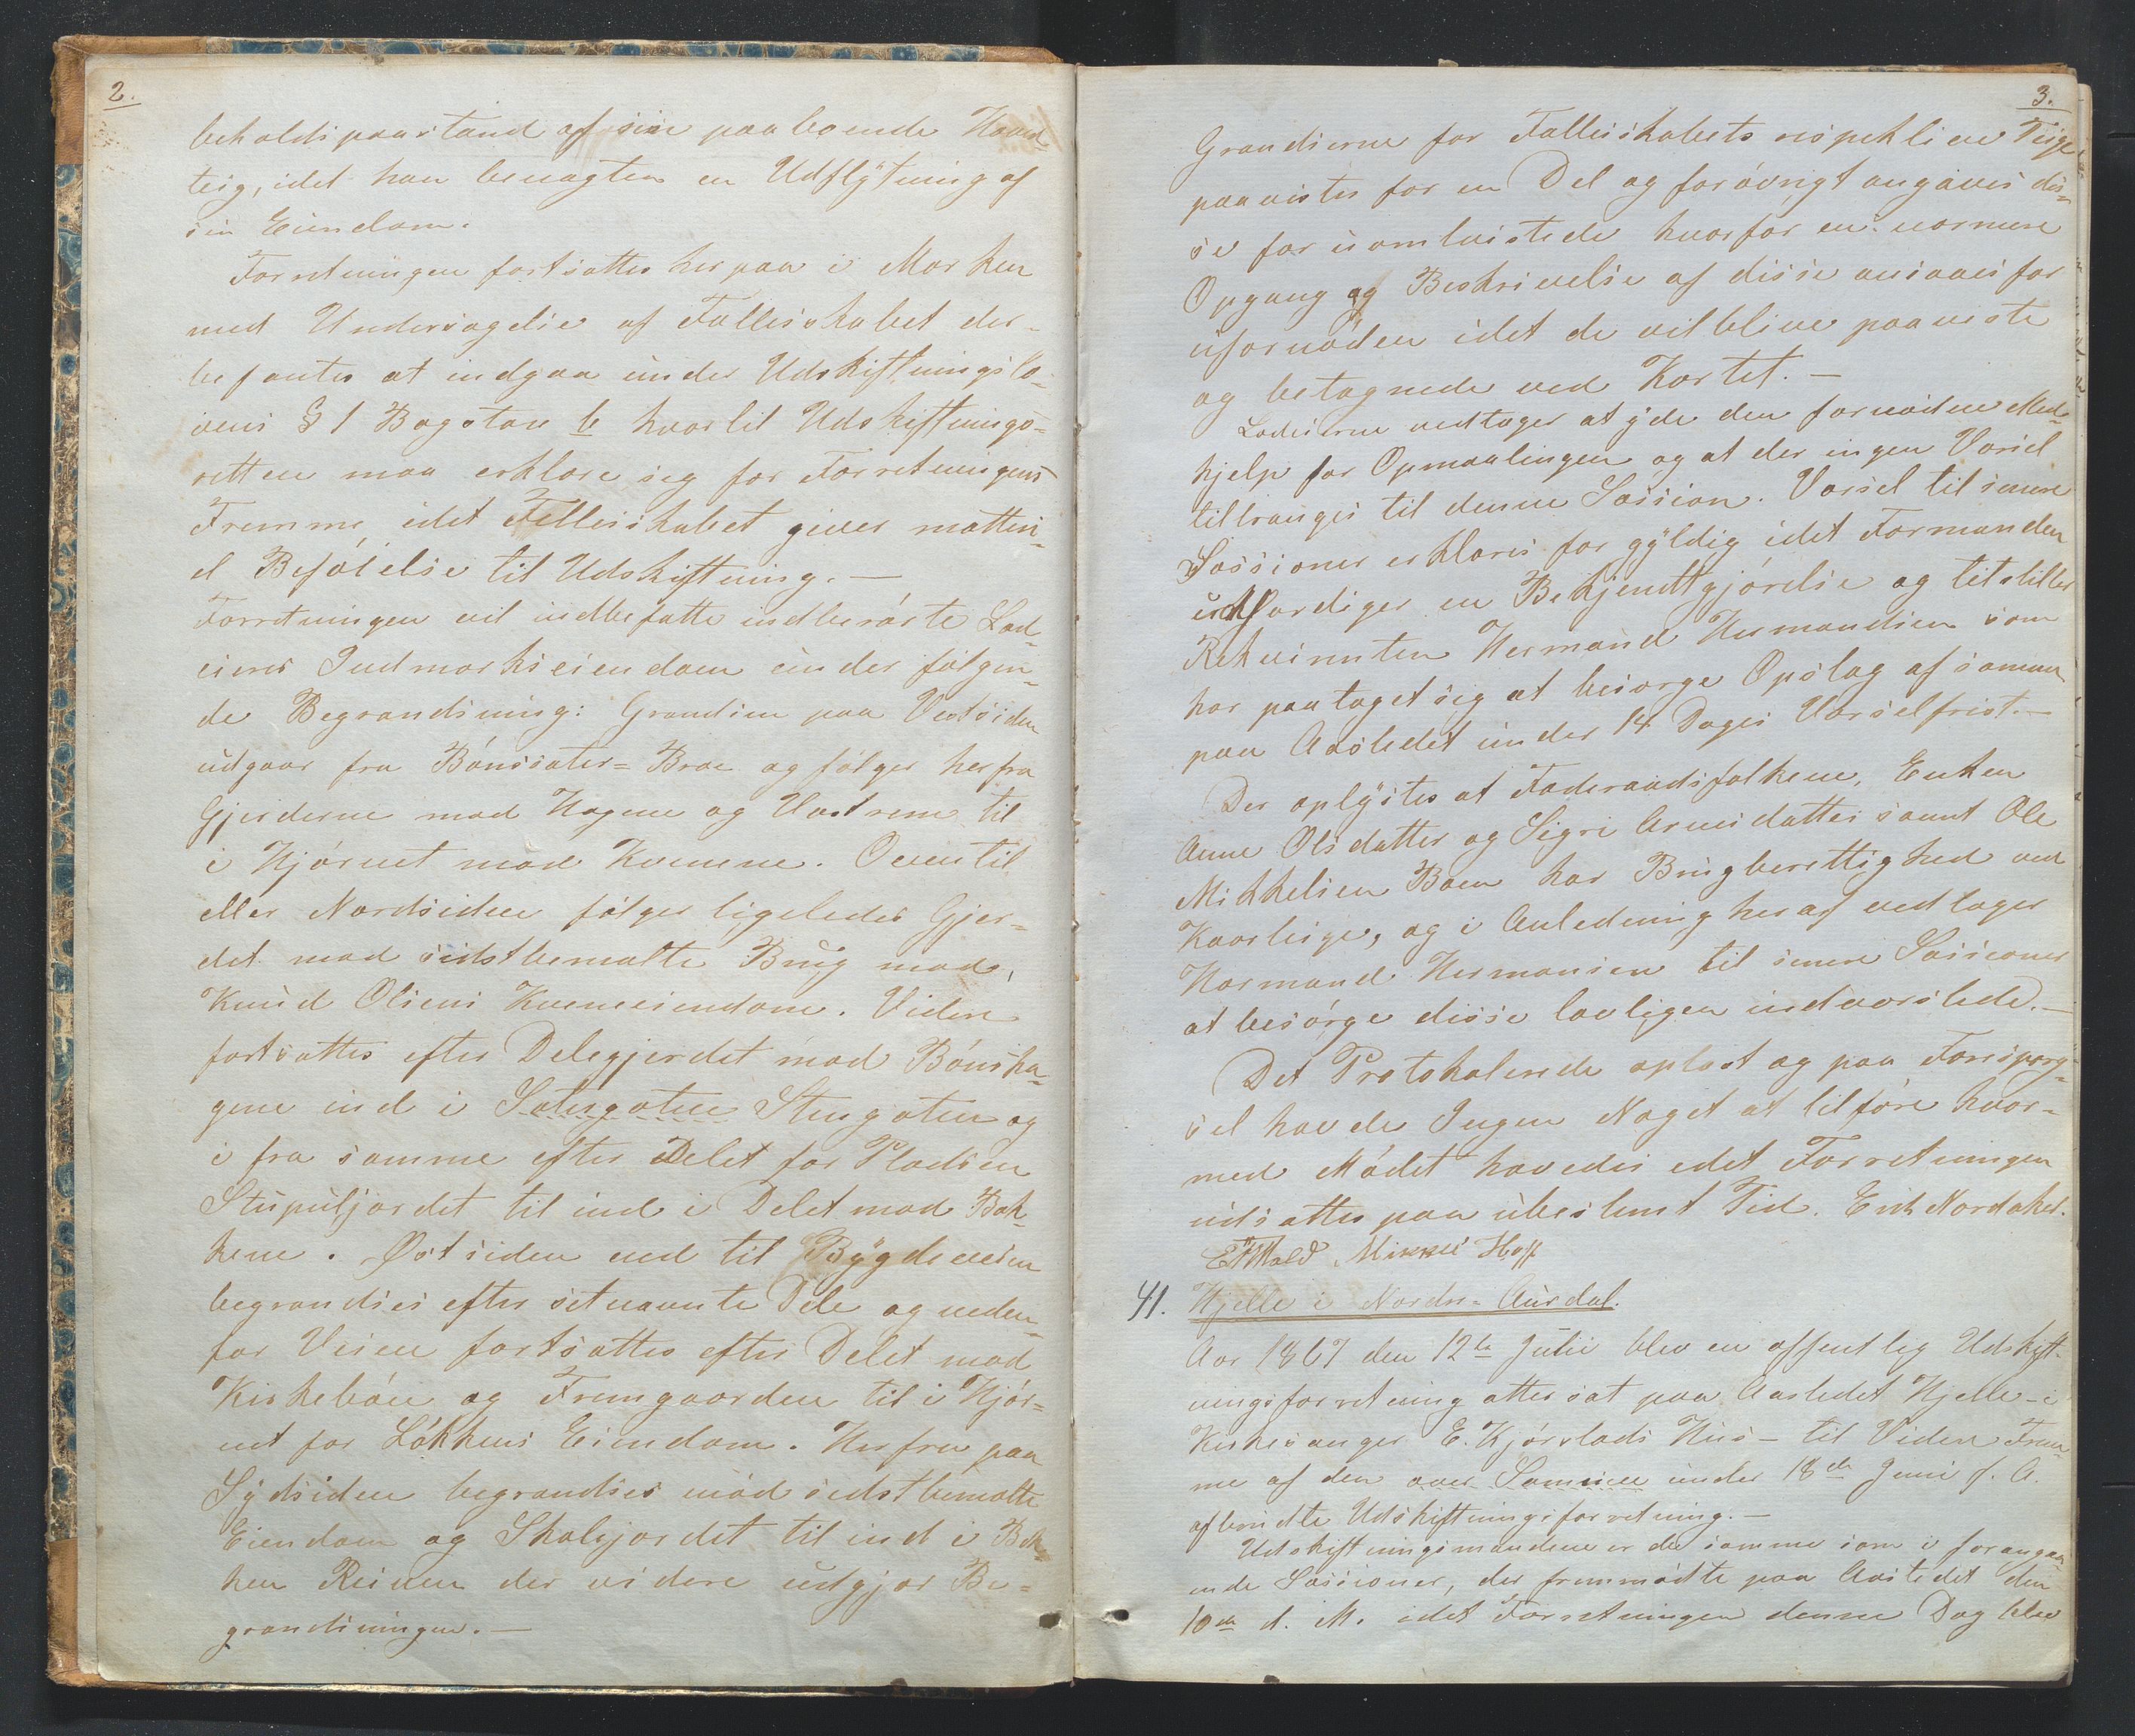 2.
beholdspaastand af sin paaboende Hoved
teig, idet han benægtes en Udflytning af
sin Eiendom.
Forretningen fortsattes herpaa i Marken
med Undersøgelse af Fællesskabet der
befantes at indgaa under Udskiftningslo-
vens § 1 Bogstav b hvortil Udskiftnings-
retten maa erklære sig for Forretningens
Fremme, idet Fællesskabet giver matteri-
el Beføielse til Udskiftning. —
Forretningen vil indbefatte indberørte Lod-
eiers Indmarkseiendom under følgen-
de Begrændsning: Grændsen paa Vestsiden
udgaar fra Bönssæter-Broe og følger herfra
Gjerderne mod Hagene og Vastrem til
i Hjørnet mod Kvenne. Oventil
eller Nordsiden følger ligeledes Gjer-
det mod sidstbemælte Brug mod,
Knud Olsens Kvenneiendom. Videre
fortsattes efter Delegjerdet mod Bönsha-
gene ind i Sætergaten Stengaten og
i fra samme efter Delet for Pladsen
Stupuljordet til ind i Delet mod Bak-
kene. Østsiden ned til Bygdeveien
begrændses efter sit nævnte Dele og neden-
for Veien fortsattes efter Delet mod
Kirkebøen og Fremgaarden til i Hjør-
net for Løkkens Eiendom. Herfra paa
Sydsiden begrændses mod sidstbemælte
Eiendom og Skolejordet til ind i Bæk-
ken Reinen der videre udgjør Be-
grændsningen. —
3.
Grændserne for Fællesskabets respektive Teige
paavistes for en Del og forøvrigt angaves dis-
se for uomtvistede hvorfor en nærmere
Opgang og Beskrivelse af disse ansaaes for
ufornøden idet de vil blive paaviste
og betegnede ved Kortet. —
Lodeierne vedtager at yde den fornødne Med-
hjelp for Opmaalingen og at der ingen Varsel
tiltrænges til denne Session. Varsel til senere
Sessioner erklæres for gyldig idet Formanden
udfærdiger en Bekjendtgjørelse og tilstiller
Rekvirenten Hermand Hermandsen som
har paataget sig at besørge Opslag af samme
paa Aastedet under 14 Dages Varselfrist. —
Der oplystes at Føderaadsfolkene, Enken
Anne Olsdatter og Sigri Arnesdatter samt Ole
Mikkelsen Bøen har Brugberettighed ved
Kaarteige, og i Anledning heraf vedtager
Hermand Hermansen til senere Sessioner
at besørge disse lovligen indvarslede. —
Det Protokolerede oplæst og paa Forespørg-
sel havde Ingen Noget at tilføre hvor-
med Mødet hævedes idet Forretningen
udsattes paa ubestemt Tid. Erik Nordaker.
Mikkel Hoff
41. Hjelle i Nordre-Aurdal.
Aar 1867 den 12te Juli blev en offentlig Udskift-
ningsforretning attersat paa Aastedet Hjelle - i
Kirkesanger E. Kjørstads Hus - til Videre Frem-
me af den over Samme under 18de Juni f. A.
afbrudte Udskiftningsforretning. —
Udskiftningsmændene er de samme som i foregaa-
ende Sessioner, der fremmødte paa Aastedet den
10de d. M. idet Forretningen denne Dag blev